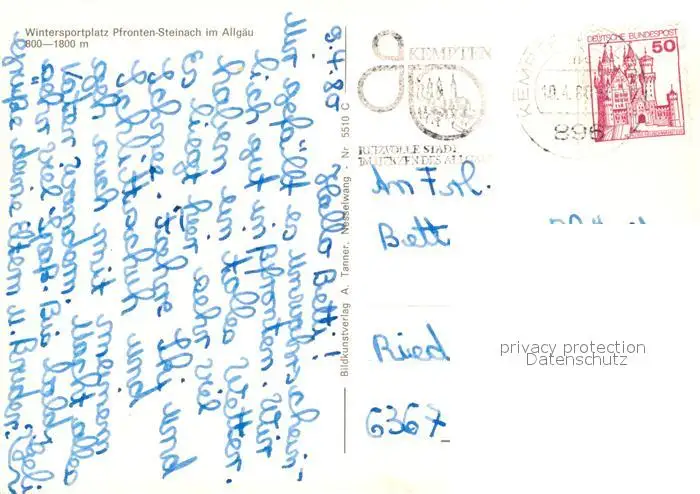 Wintersportplatz Pfronten-Steinach im Allgäu
800—1800 m
KEMPTEN
REIZVOLLE STADT
IM HERZEN DES ALLGÄUS
DEUTSCHE BUNDESPOST
50
10.4.80
896
Bildkunstverlag A. Tanner, Nesselwang - Nr 5510 C
9.4.80
Hallo Betti!
Mir gefällt es unwahrschein
lich gut in Pfronten. Wir
haben ein tolles Wetter.
Es liegt hier sehr viel
Schnee. Ich fahre Ski und
Schlittschuh und
geh auch mit meinem
Vater wandern. Macht alles
sehr viel Spaß. Bis bald
grüße deine Eltern u. Bruder.
An Frl.
Bett
Ried
6367
privacy protection
Datenschutz